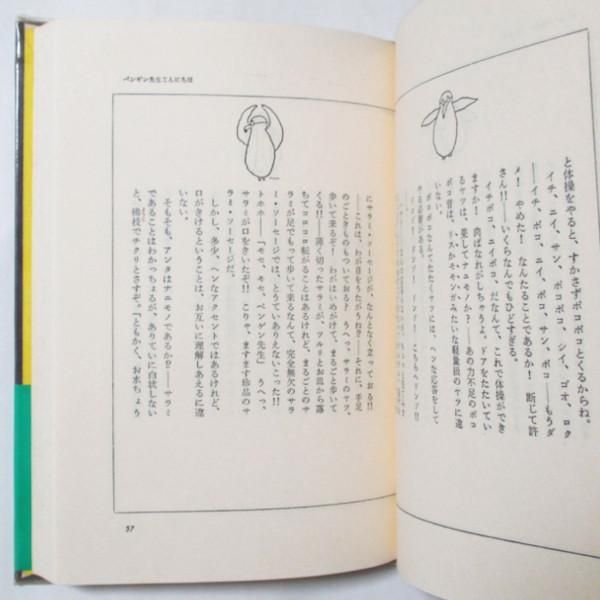 と体操をやると、すかさずポコポコとくるからね。
――イチ、ニイ、サン、ポコポコ、シイ、ゴオ、ロク
――イチ、ポコ、ニイ、ポコ、サン、ポコ――もうダ
メ！ やめた！ なんたることであるか！ 断じて許
さん!!――いくらなんでもひどすぎる。
イチポコ、ニイポコ、だなんて、これで体操ができ
ますか！ 肉ばなれがしちゃうよ。ドアをたたいてい
るヤツは、果してナニモノか？――あの力不足のポコ
ポコ音は、リスかモモンガみたいな軽量級のヤツに違
いない。
ポコポコなんてたたくヤツには、ヘンな応答をして
ペンギン先生こんにちは
にサラミ・ソーセージが、なんとなく立っておる!!
――これは、わが目をうたがうね？――それに、手足
のごときものもついておる？ うへっ、サラミのヤツ、
歩いて来るぞ！ わがはいめがけて、まるごと歩いて
くる!!――薄く切ったサラミが、ツルリとお皿から落
ちてコロコロ転がることはあるけれど、まるごとのサ
ラミが足でもって歩いて来るなんて、完全無欠のサラ
ミ・ソーセージでは、とうていありえないこった!!
トホホ――「モセ、モセ、ペンゲン先生」 うへっ、
サラミが口をきいたぞ!! こりゃ、ますます珍品のサ
ラミ・ソーセージだ。
しかし、多少、ヘンなアクセントではあるけれど、
口がきけるということは、お互いに理解しあえるに違
いない。
そもそも、アンタはナニモノであるか!?――サラミ
であることはわかっちょるが、ありていに白状しない
と、楊枝でチクリとさすぞ。「ともかく、お水ちょう
37